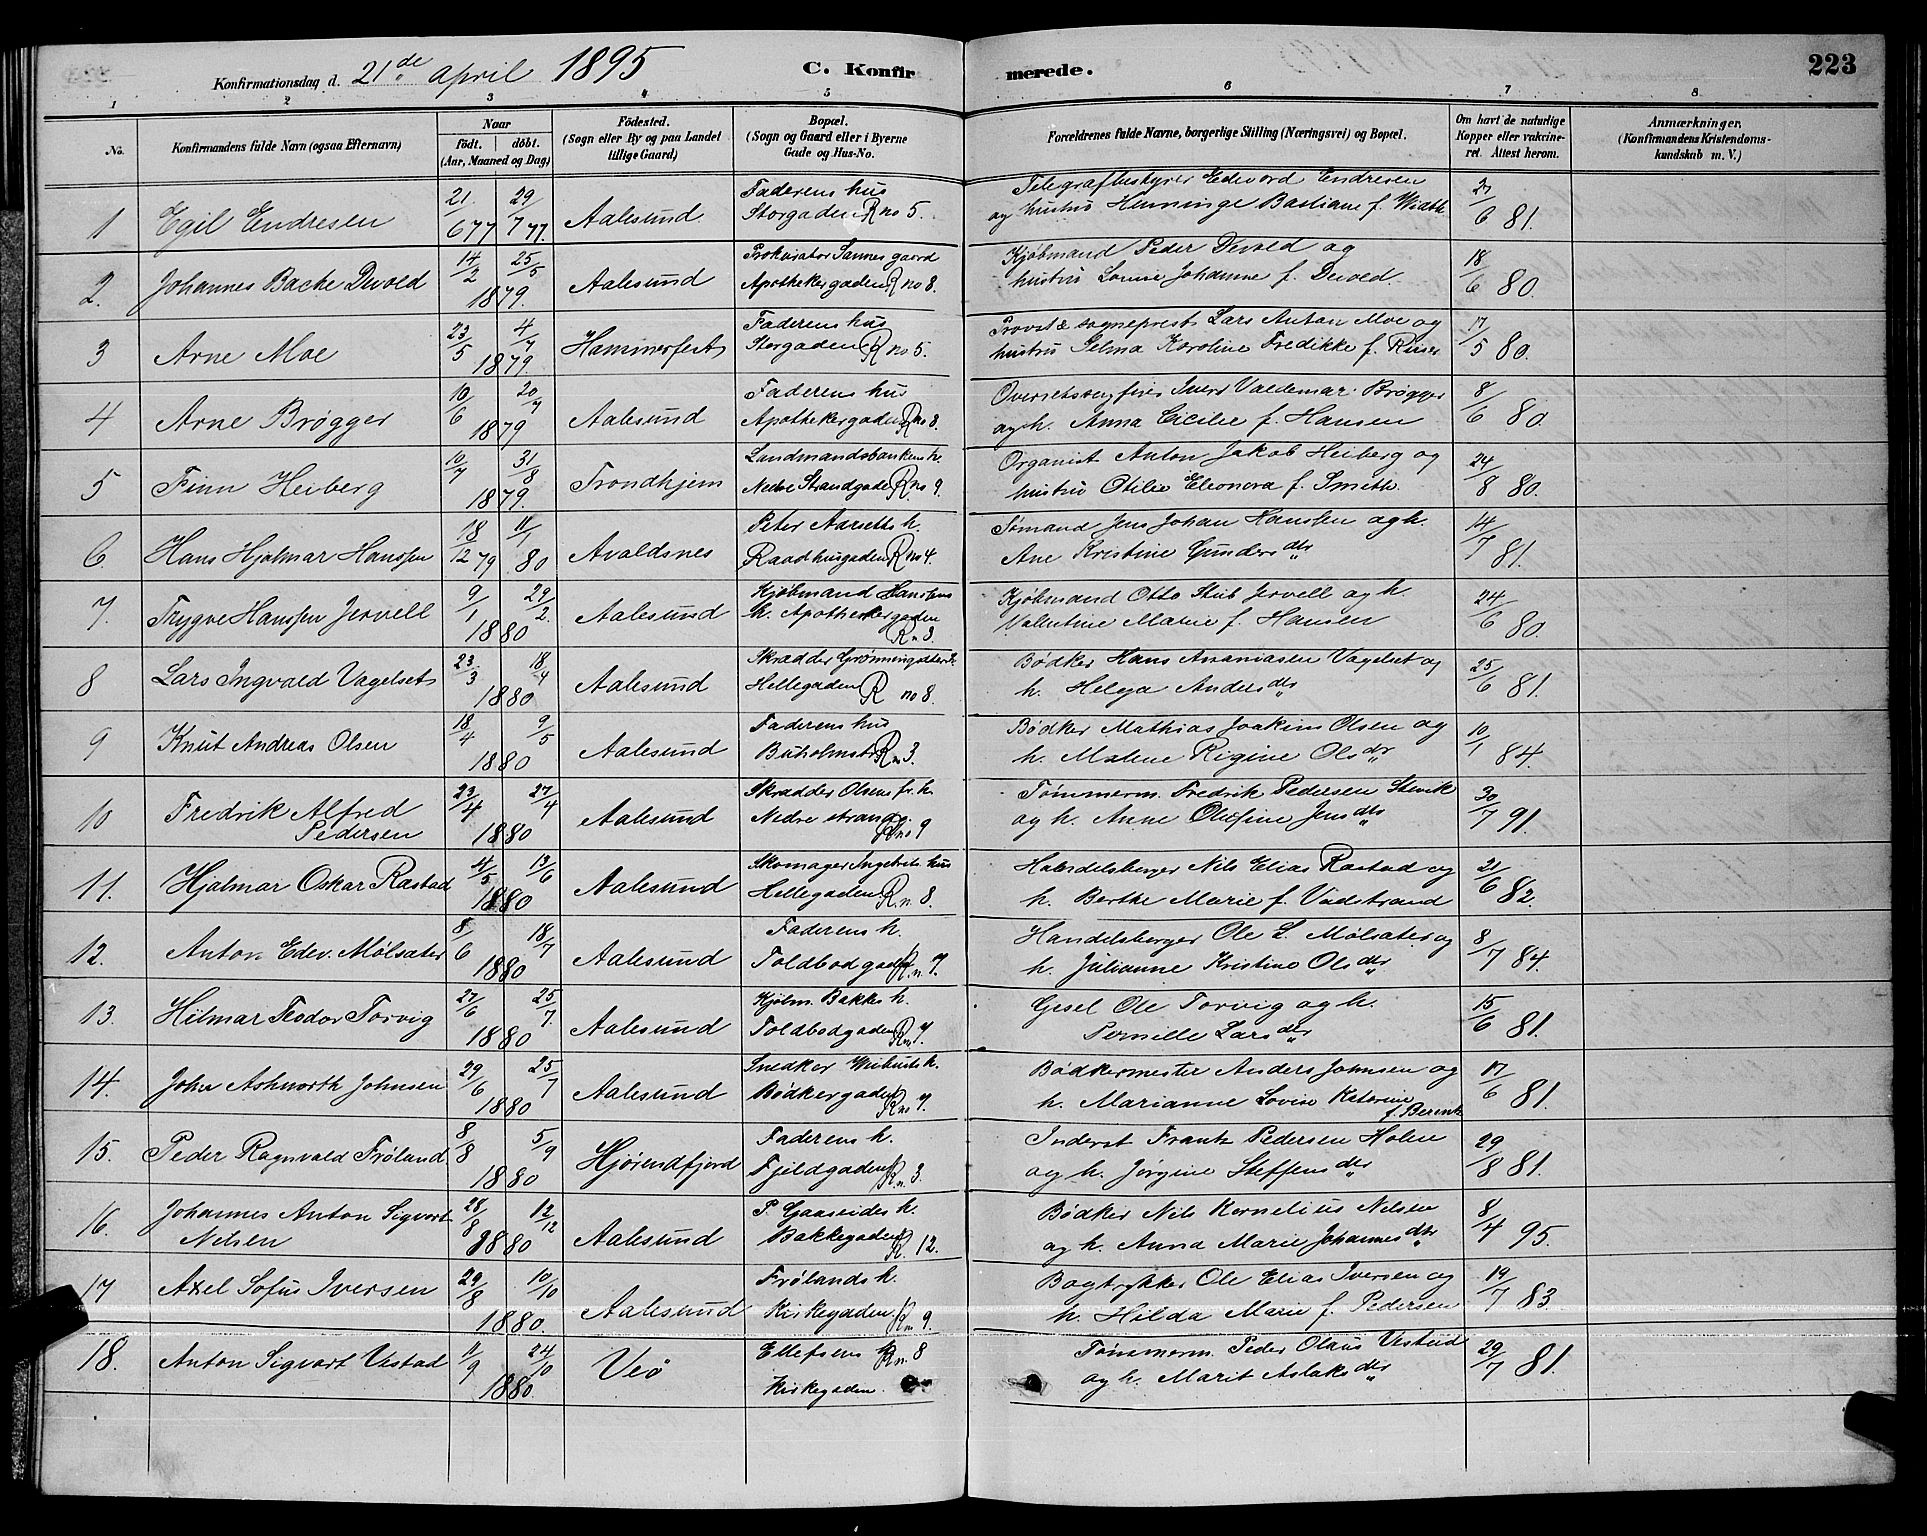 Konfirmationsdag d. 21de april 1895 C. Konfirmerede. 223
1 2 3 4 5 6 7 8
No.
Konfirmandens fulde Navn (ogsaa Efternavn)
Naar
födt. döbt.
(Aar, Maaned og Dag)
Födested.
(Sogn eller By og paa Landet
tillige Gaard)
Bopæl.
(Sogn og Gaard eller i Byerne
Gade og Hus-No.
Forældrenes fulde Navne, borgerlige Stilling (Næringsvei) og Bopæl.
Om havt de naturlige
Kopper eller vakcine-
ret. Attest herom.
Anmærkninger,
(Konfirmandens Kristendoms-
kundskab m. V.)
1 Egil Endresen 21/6 77 29/7 77. Aalesund
Faderens hus
Storgaden R no 5.
Telegrafbestyrer Edvard Endresen
og hustru Henninge Bastiane f. Width
21/6 81.
2. Johannes Backe Devold 14/2 25/5 1879. Aalesund
Prokurator Sannes gaard
Apothekergaden R no 8.
Kjøbmand Peder Devold og
hustru Johanne f. Devold.
18/6 80.
3 Arne Moe 23/5 4/7 1879. Hammerfest
Faderens hus
Storgaden R no 5.
Provst & sogneprest Lars Anton Moe og
hustru Selma Karoline Fredikke f.
17/5 80.
4 Arne Brøgger 10/6 20/7 1879 Aalesund
Faderens hus
Apothekergaden R no 8.
Iver Valdemar Brøgger
og h. Anna Cicilie f. Hansen
8/6 80.
5 Finn Heiberg 10/7 31/8 1879. Trondhjem
Landmandsbankens h.
Nedre Strandgade R no 9.
Organist Anton Jakob Heiberg og
hustru Otilie Eleonora f. Smith.
24/8 80.
6. Hans Hjalmar Hanssen 18/12 79 11/1 80 Avaldsnes
Peter Aarseths h.
Raadhusgaden R no 4.
Sømand Jens Johan Hanssen og h.
Ane Kristine Gunders dtr
14/7 81.
7. Trygve Hanssen Jervell 9/1 29/2. 1880 Aalesund
Kjøbmand Hanssens
h. Apothekergaden
R n 8.
Kjøbmand Otto Stub Jervell og h.
Valentine Marie f. Hansen
24/6 80.
8 Lars Ingvald Vagelset 23/3 18/4 1880 Aalesund
Skrædder
Hellegaden R no 8.
Bødker Hans Ananiasen Vagelset og
h. Helga Anders dtr
25/6 81.
9 Knut Andreas Olsen 18/4 9/5 1880 Aalesund
Faderens hus
Buholmstr R n 3.
Bødker Mathias Joakim Olsen og
h. Malene Rigine Ols dtr
10/1 84.
10 Fredrik Alfred
Pedersen 23/4 27/4 1880 Aalesund
Skrædder Olsens h.
Nedre strandg. R no 9
Tømmerm. Fredrik Pedersen Stavik
og h. Anne Olefine Jens dtr
30/7 91.
11. Hjalmar Oskar Rastad 4/5 13/6 1880 Aalesund
Skomager Ingebrets hus
Hellegaden R. n. 8.
Handelsberger Nils Elias Rastad og
h. Berthe Marie f. Vadstrand
21/6 82.
12. Anton Edv. Mølsater 8/6 18/7 1880 Aalesund
Faderens h.
Toldbodgaden R. n. 7.
Handelsberger Ole L. Mølsater og
h. Julianne Kristine Ols dtr
8/7 84.
13. Hilmar Teodor Torvig 27/6 25/7. 1880 Aalesund
Kjøbm. Bakkes h.
Toldbodgaden R n 7.
Gesel Ole Torvig og h.
Pernille Lars dtr
15/6 81.
14. John Ashworth Johnsen 29/6 25/7 1880 Aalesund
Snedker h.
Bødkergaden R no 7.
Bødkermester Anders Johnsen og
h. Marianne Lovise Katerine
f. Berent
17/6 81.
15. Peder Ragnvald Frøland 8/8 5/9 1880 Hjørendfjord
Faderens h.
Fjeldgaden R. n. 3.
Inderst Frantz Pedersen Holen
og h. Jørgine Steffens dtr
29/8 81.
16. Johannes Anton Sigvart
Nelsen 28/8 12/12 1880 Aalesund
P. Gaaseides h.
Bakkegaden R. 12.
Bødker Nils Kornelius Nelsen
og h. Anna Marie Johannes dtr
8/4 95.
17 Axel Sofus Iversen 29/8 10/10 1880. Aalesund
Frølands h.
Kirkegaden. R n 9.
Bogtrykker Ole Elias Iversen og
h. Hilda Marie f. Pedersen
19/7 83.
18. Anton Sigvart Vestad 11/9 24/10 1880. Veø
Ellefsens h. R n. 8
Kirkegaden.
Tømmerm. Peder Olaus Vestad
og h. Marit Aslaks dtr
29/7 81.